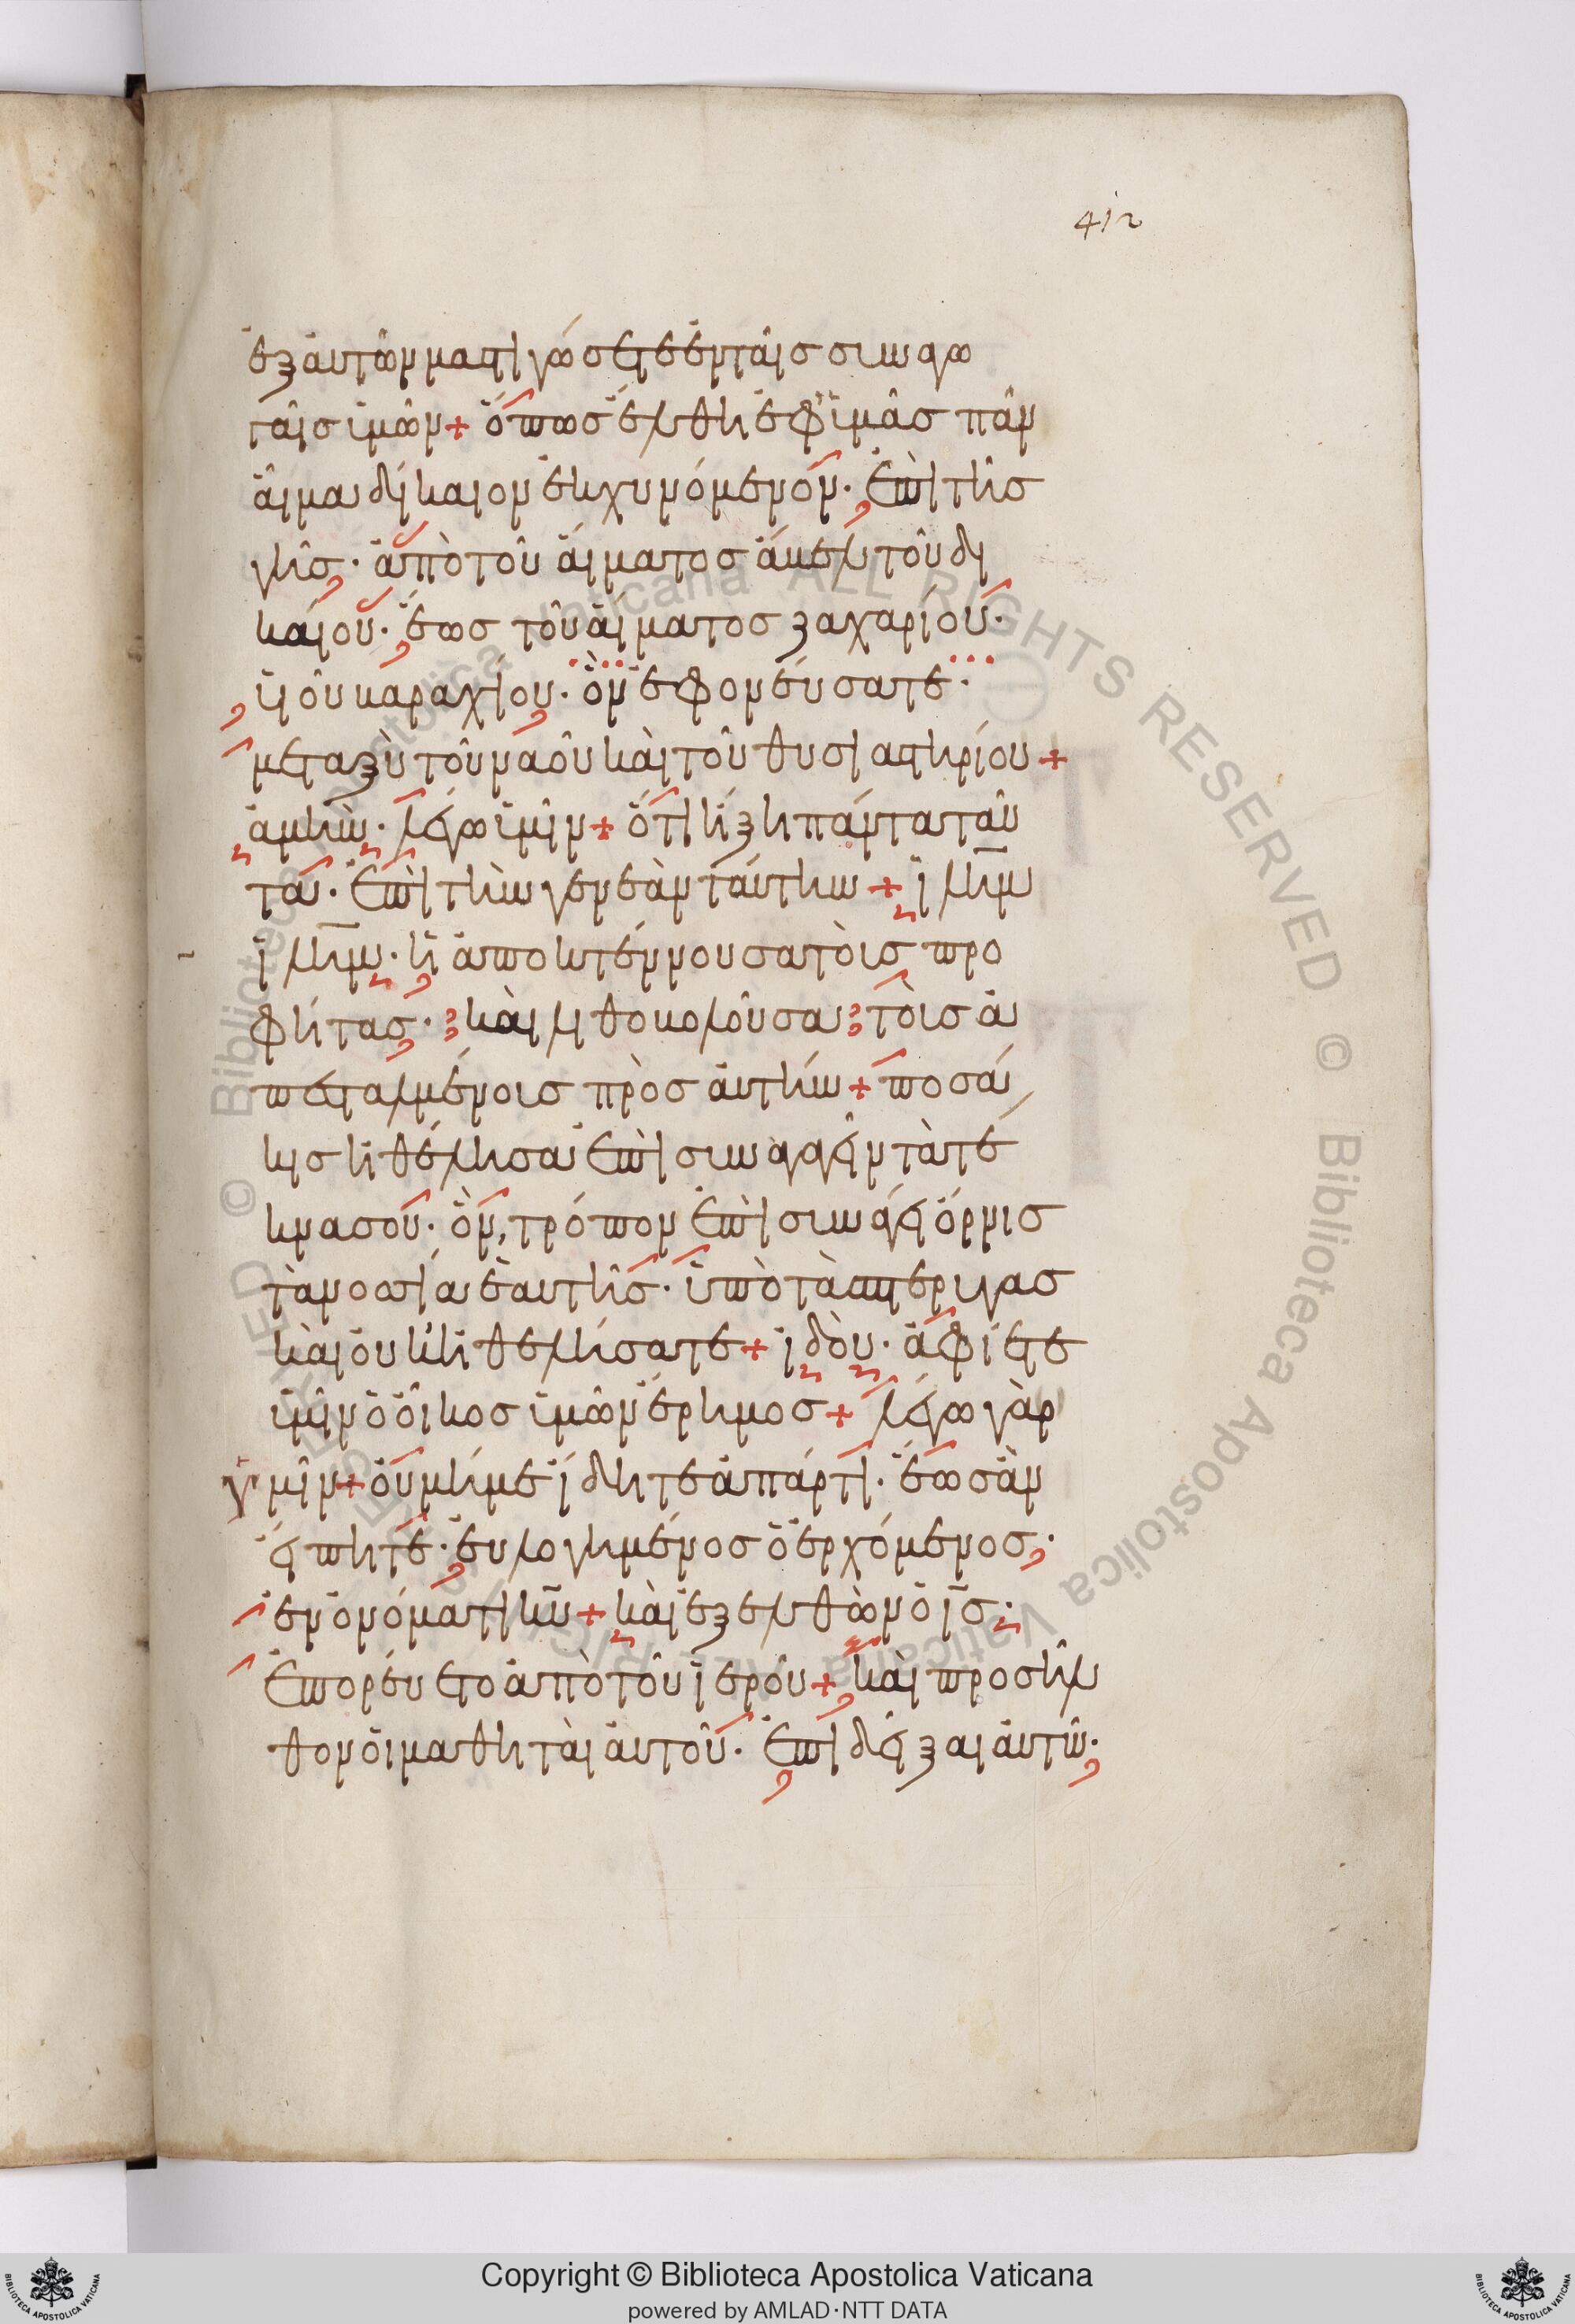 412
ἐξ ἀυτῶν μαστιγώσετε ἐν ταῖσ συναγω
γαῖσ ἱμῶν + ὅπωσ ἔλθη ἐφ ἱμᾶσ πᾶν
ἇιμα δίκαιον ἐκχυνόμενον · ἐπὶ τῆσ
γῆσ · ἀπὸ τοῦ ἅιματοσ ἄκελ τοῦ δι
κάιου · ἕωσ τοῦ ἅιματοσ ζαχαρίου ·
ἱιοῦ καραχίου · ὃν ἐφονέυσατε ·
μεταξὺ τοῦ ναοῦ κὰι τοῦ θυσιαστηρίου +
ἀμὴν · λέγω ἱμῖν + ὅτι ἥξη πάντα ταῦ
τα · ἐπὶ τὴν γενεὰν τάυτην + ἰλημ
ἰλημ · ἡ ἀποκτέννουσα τὸισ προ
φήτασ · κὰι λιθοκολοῦσα τὸισ ἀ
πεσταλμένοισ πρὸσ ἀυτήν + ποσά
κισ ἠθέλησα ἐπὶ συναγαγεῖν τὰ τέ
κνα σου · ὃν τρόπον ἐπὶ συνάγει ὄρνισ
τὰ νοσία ἑαυτῆσ · ὑπὸ τὰσ πτέριγασ
κὰι ὀυκ ἠθελήσατε + ἰδὸυ · ἀφίετε
ἱμῖν ὁ ὀῖκοσ ἱμῶν ἔρημοσ + λέγω γὰρ
ὑμῖν + ὀυ μή με ἴδητε ἀπάρτι · ἕωσ ἂν
εἴπητε · ἐυλογημένοσ ὁ ἐρχόμενοσ ·
ἐν ὀνόματι κυ + κὰι ἐξελθὼν ὁ ισ ·
ἐπορέυετο ἀπὸ τοῦ ἱεροῦ + κὰι προσῆλ
θον ὁι μαθητὰι ἀυτοῦ · ἐπιδεῖξαι ἀυτῶ ·
Copyright © Biblioteca Apostolica Vaticana
powered by AMLAD·NTT DATA